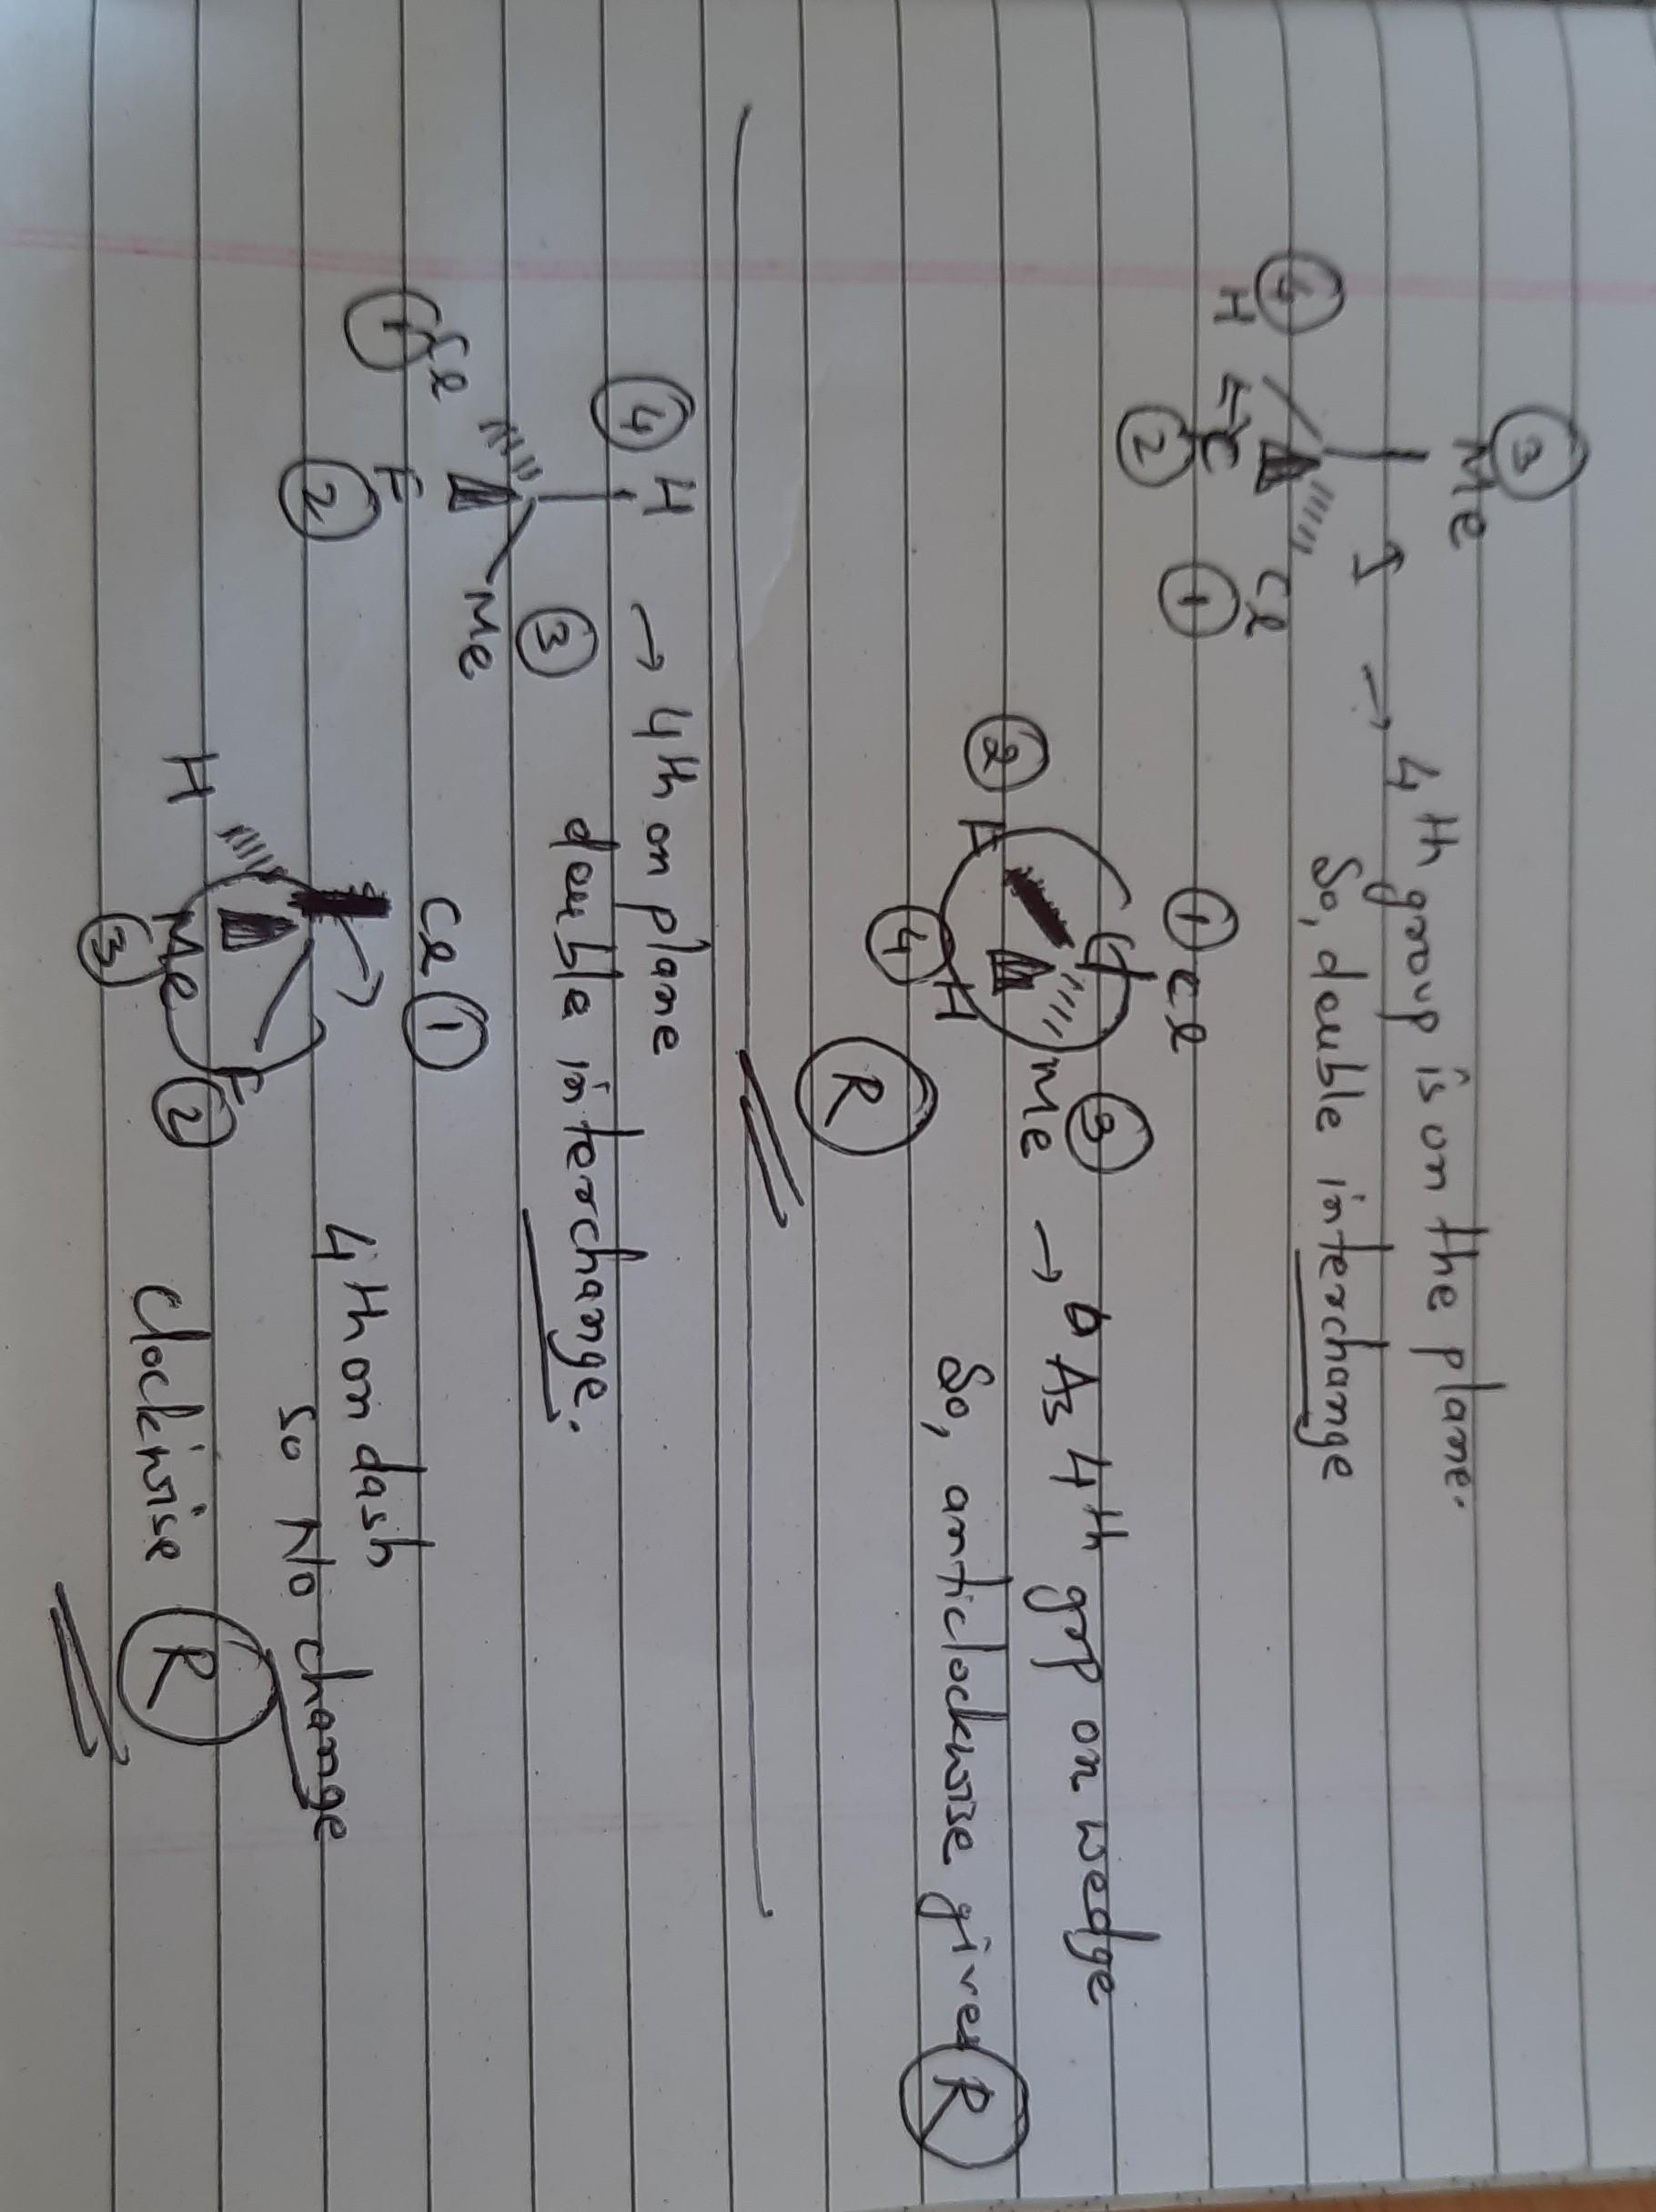 ③
Me
④
H
F
②
Cl
①
→ 4th group is on the plane.
So, double interchange
① Cl
②
F
④
H
Me ③
→ As 4th grp on wedge
So, anticlockwise gives R
R
④ H → 4th on plane
double interchange.
① Cl
F
②
Me ③
Cl ①
H
Me
③
F
②
4th on dash
so No change
clockwise R